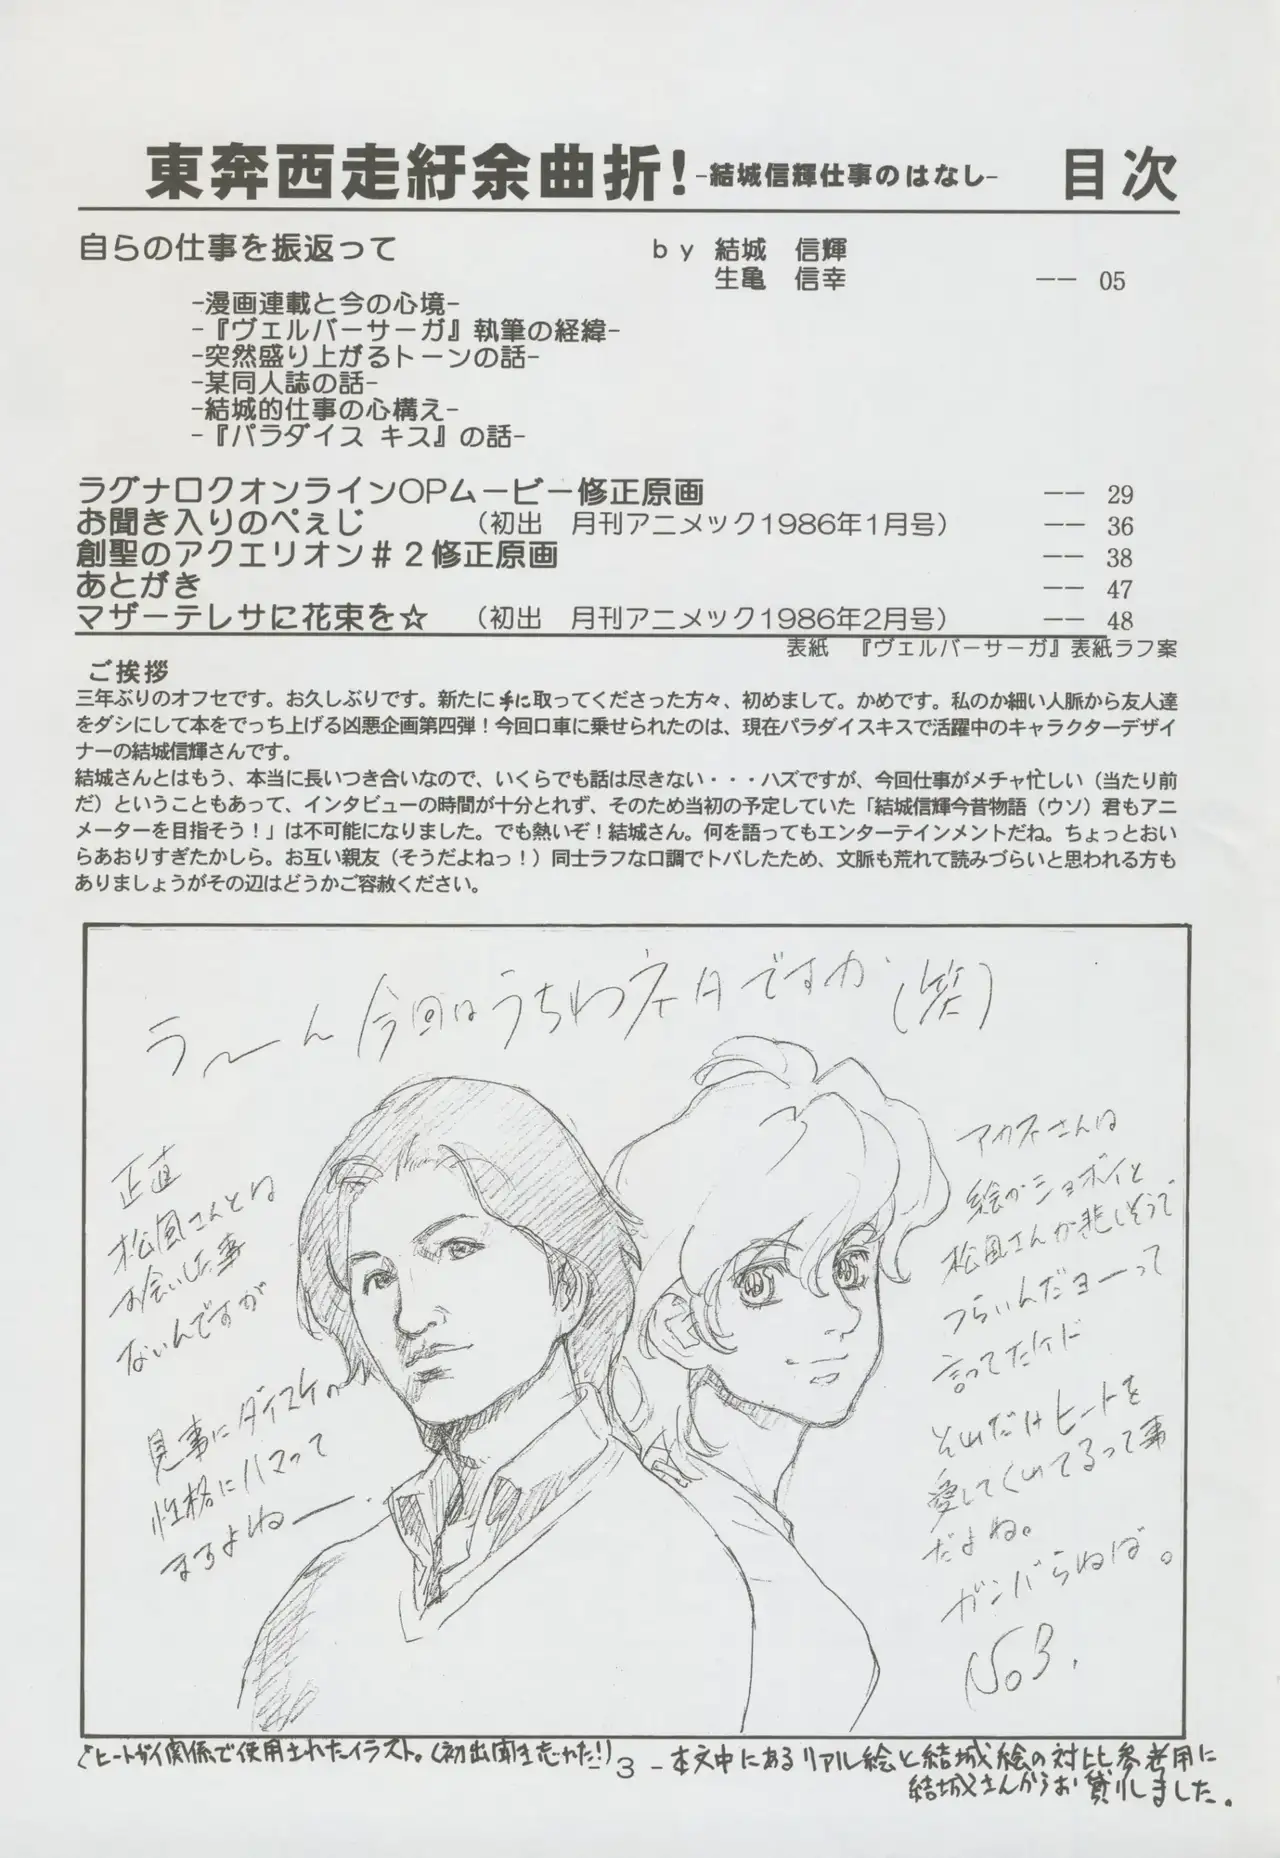 東奔西走紆余曲折！-結城信輝仕事のはなし- 目次
自らの仕事を振返って by 結城 信輝
生亀 信幸 —— 05
-漫画連載と今の心境-
-『ヴェルバーサーガ』執筆の経緯-
-突然盛り上がるトーンの話-
-某同人誌の話-
-結城的仕事の心構え-
-『パラダイス キス』の話-
ラグナロクオンラインOPムービー修正原画 —— 29
お聞き入りのぺぇじ （初出 月刊アニメック1986年1月号） —— 36
創聖のアクエリオン＃２修正原画 —— 38
あとがき —— 47
マザーテレサに花束を☆ （初出 月刊アニメック1986年2月号） —— 48
表紙 『ヴェルバーサーガ』表紙ラフ案
ご挨拶
三年ぶりのオフセです。お久しぶりです。新たに手に取ってくださった方々、初めまして。かめです。私のか細い人脈から友人達
をダシにして本をでっち上げる凶悪企画第四弾！今回口車に乗せられたのは、現在パラダイスキスで活躍中のキャラクターデザイ
ナーの結城信輝さんです。
結城さんとはもう、本当に長いつき合いなので、いくらでも話は尽きない・・・ハズですが、今回仕事がメチャ忙しい（当たり前
だ）ということもあって、インタビューの時間が十分とれず、そのため当初の予定していた「結城信輝今昔物語（ウソ）君もアニ
メーターを目指そう！」は不可能になりました。でも熱いぞ！結城さん。何を語ってもエンターテインメントだね。ちょっとおい
らあおりすぎたかしら。お互い親友（そうだよねっ！）同士ラフな口調でトバしたため、文脈も荒れて読みづらいと思われる方も
ありましょうがその辺はどうかご容赦ください。
う〜ん今回はうちわネタですか（笑）
正直
松風さんとは
お会いした事
ないんですが
見事にダイスケの
性格にハマって
まるよねー.
アカネさんは
絵がショボイと
松風さんが悲しそうで
つらいんだヨーって
言ってたケド
それだけヒートを
愛してくれてるって事
だよね。
ガンバらねば。
No3.
ヒートガイ関係で使用されたイラスト。(初出聞き忘れた!)
- 3 -
本文中にあるリアル絵と結城絵の対比参考用に
結城さんからお貸りしました。